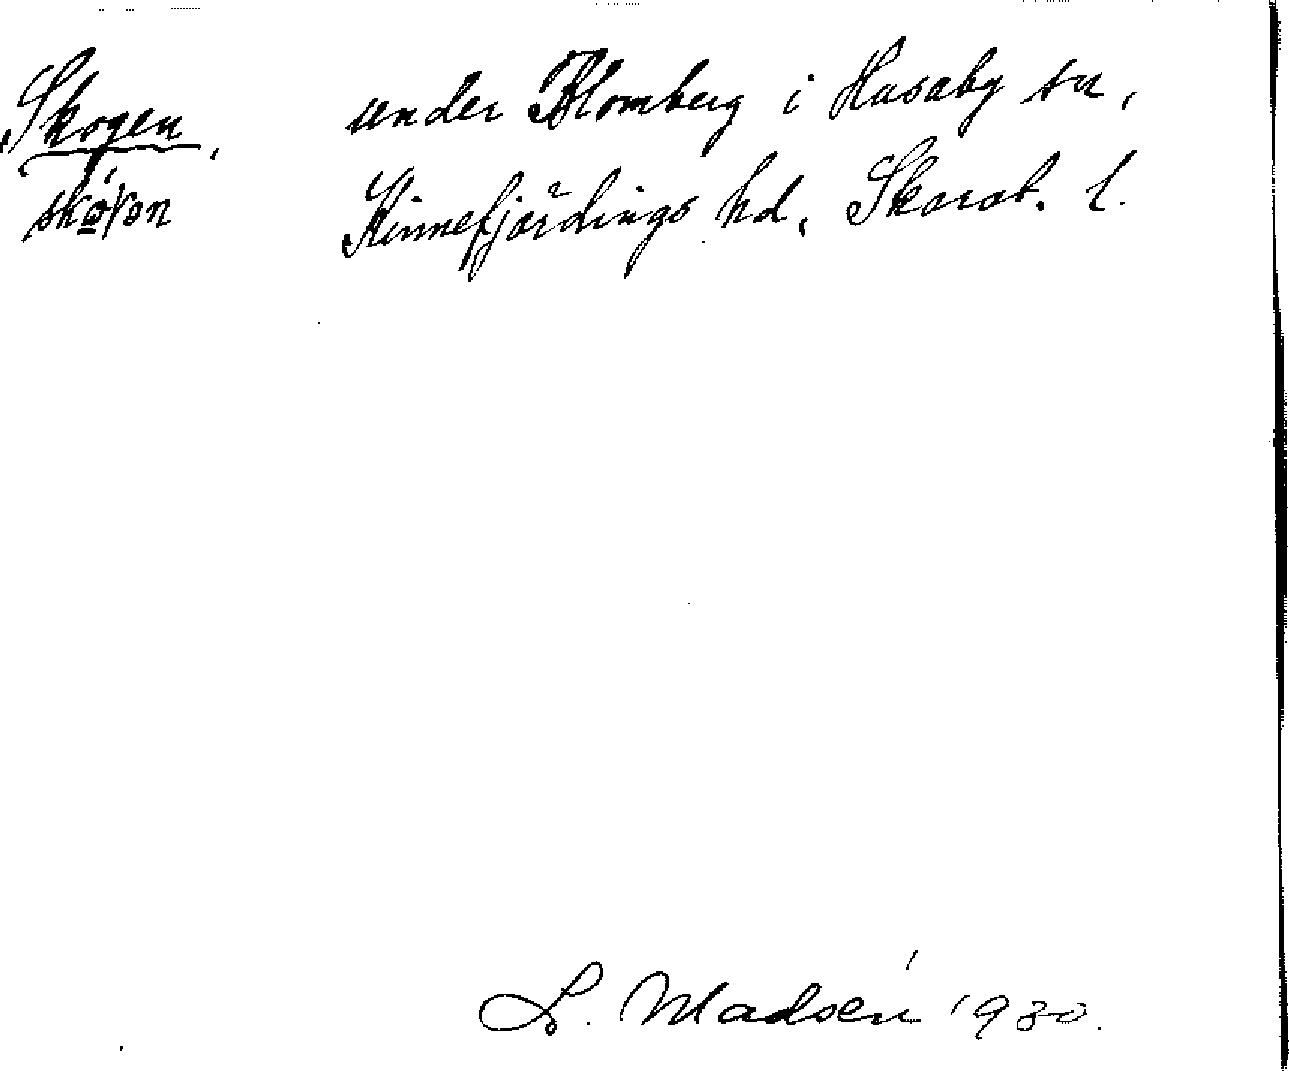 Skogen, under Blomberg i Husaby sn,
Kinnefjärdings hd, Skarab. l.
L. Madsén 1930.